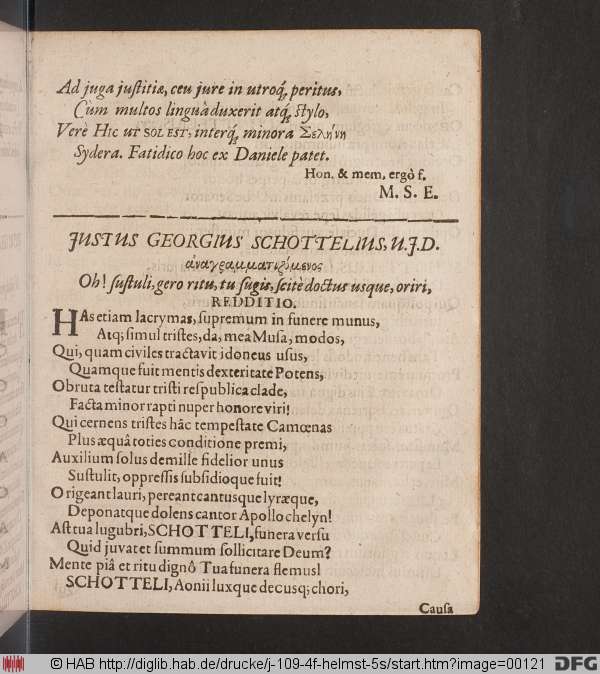 Ad juga justitiæ, ceu jure in utroq́, peritus,
Cùm multos linguà duxerit atq́, stylo,
Verè Hic ut SOL EST, interq́, minora Σελήνη
Sydera. Fatidico hoc ex Daniele patet.
Hon. & mem. ergò f.
M. S. E.
JUSTUS GEORGIUS SCHOTTELIUS, U.J.D.
ἀναγραμματιζόμενος
Oh! sustuli, gero ritu, tu fugis, scitè doctus usque, oriri,
REDDITIO.
HAs etiam lacrymas, supremum in funere munus,
Atq; simul tristes, da, mea Musa, modos,
Qui, quam civiles tractavit idoneus usus,
Quamque fuit mentis dexteritate Potens,
Obruta testatur tristi respublica clade,
Facta minor rapti nuper honore viri!
Qui cernens tristes hâc tempestate Camœnas
Plus æquâ toties conditione premi,
Auxilium solus de mille fidelior unus
Sustulit, oppressis subsidioque fuit!
O rigeant lauri, pereant cantusque lyræque,
Deponatque dolens cantor Apollo chelyn!
Ast tua lugubri, SCHOTTELI, funera versu
Quid juvat et summum sollicitare Deum?
Mente piâ et ritu dignô Tua funera flemus!
SCHOTTELI, Aonii luxque decusq; chori,
Causa
© HAB http://diglib.hab.de/drucke/j-109-4f-helmst-5s/start.htm?image=00121
DFG